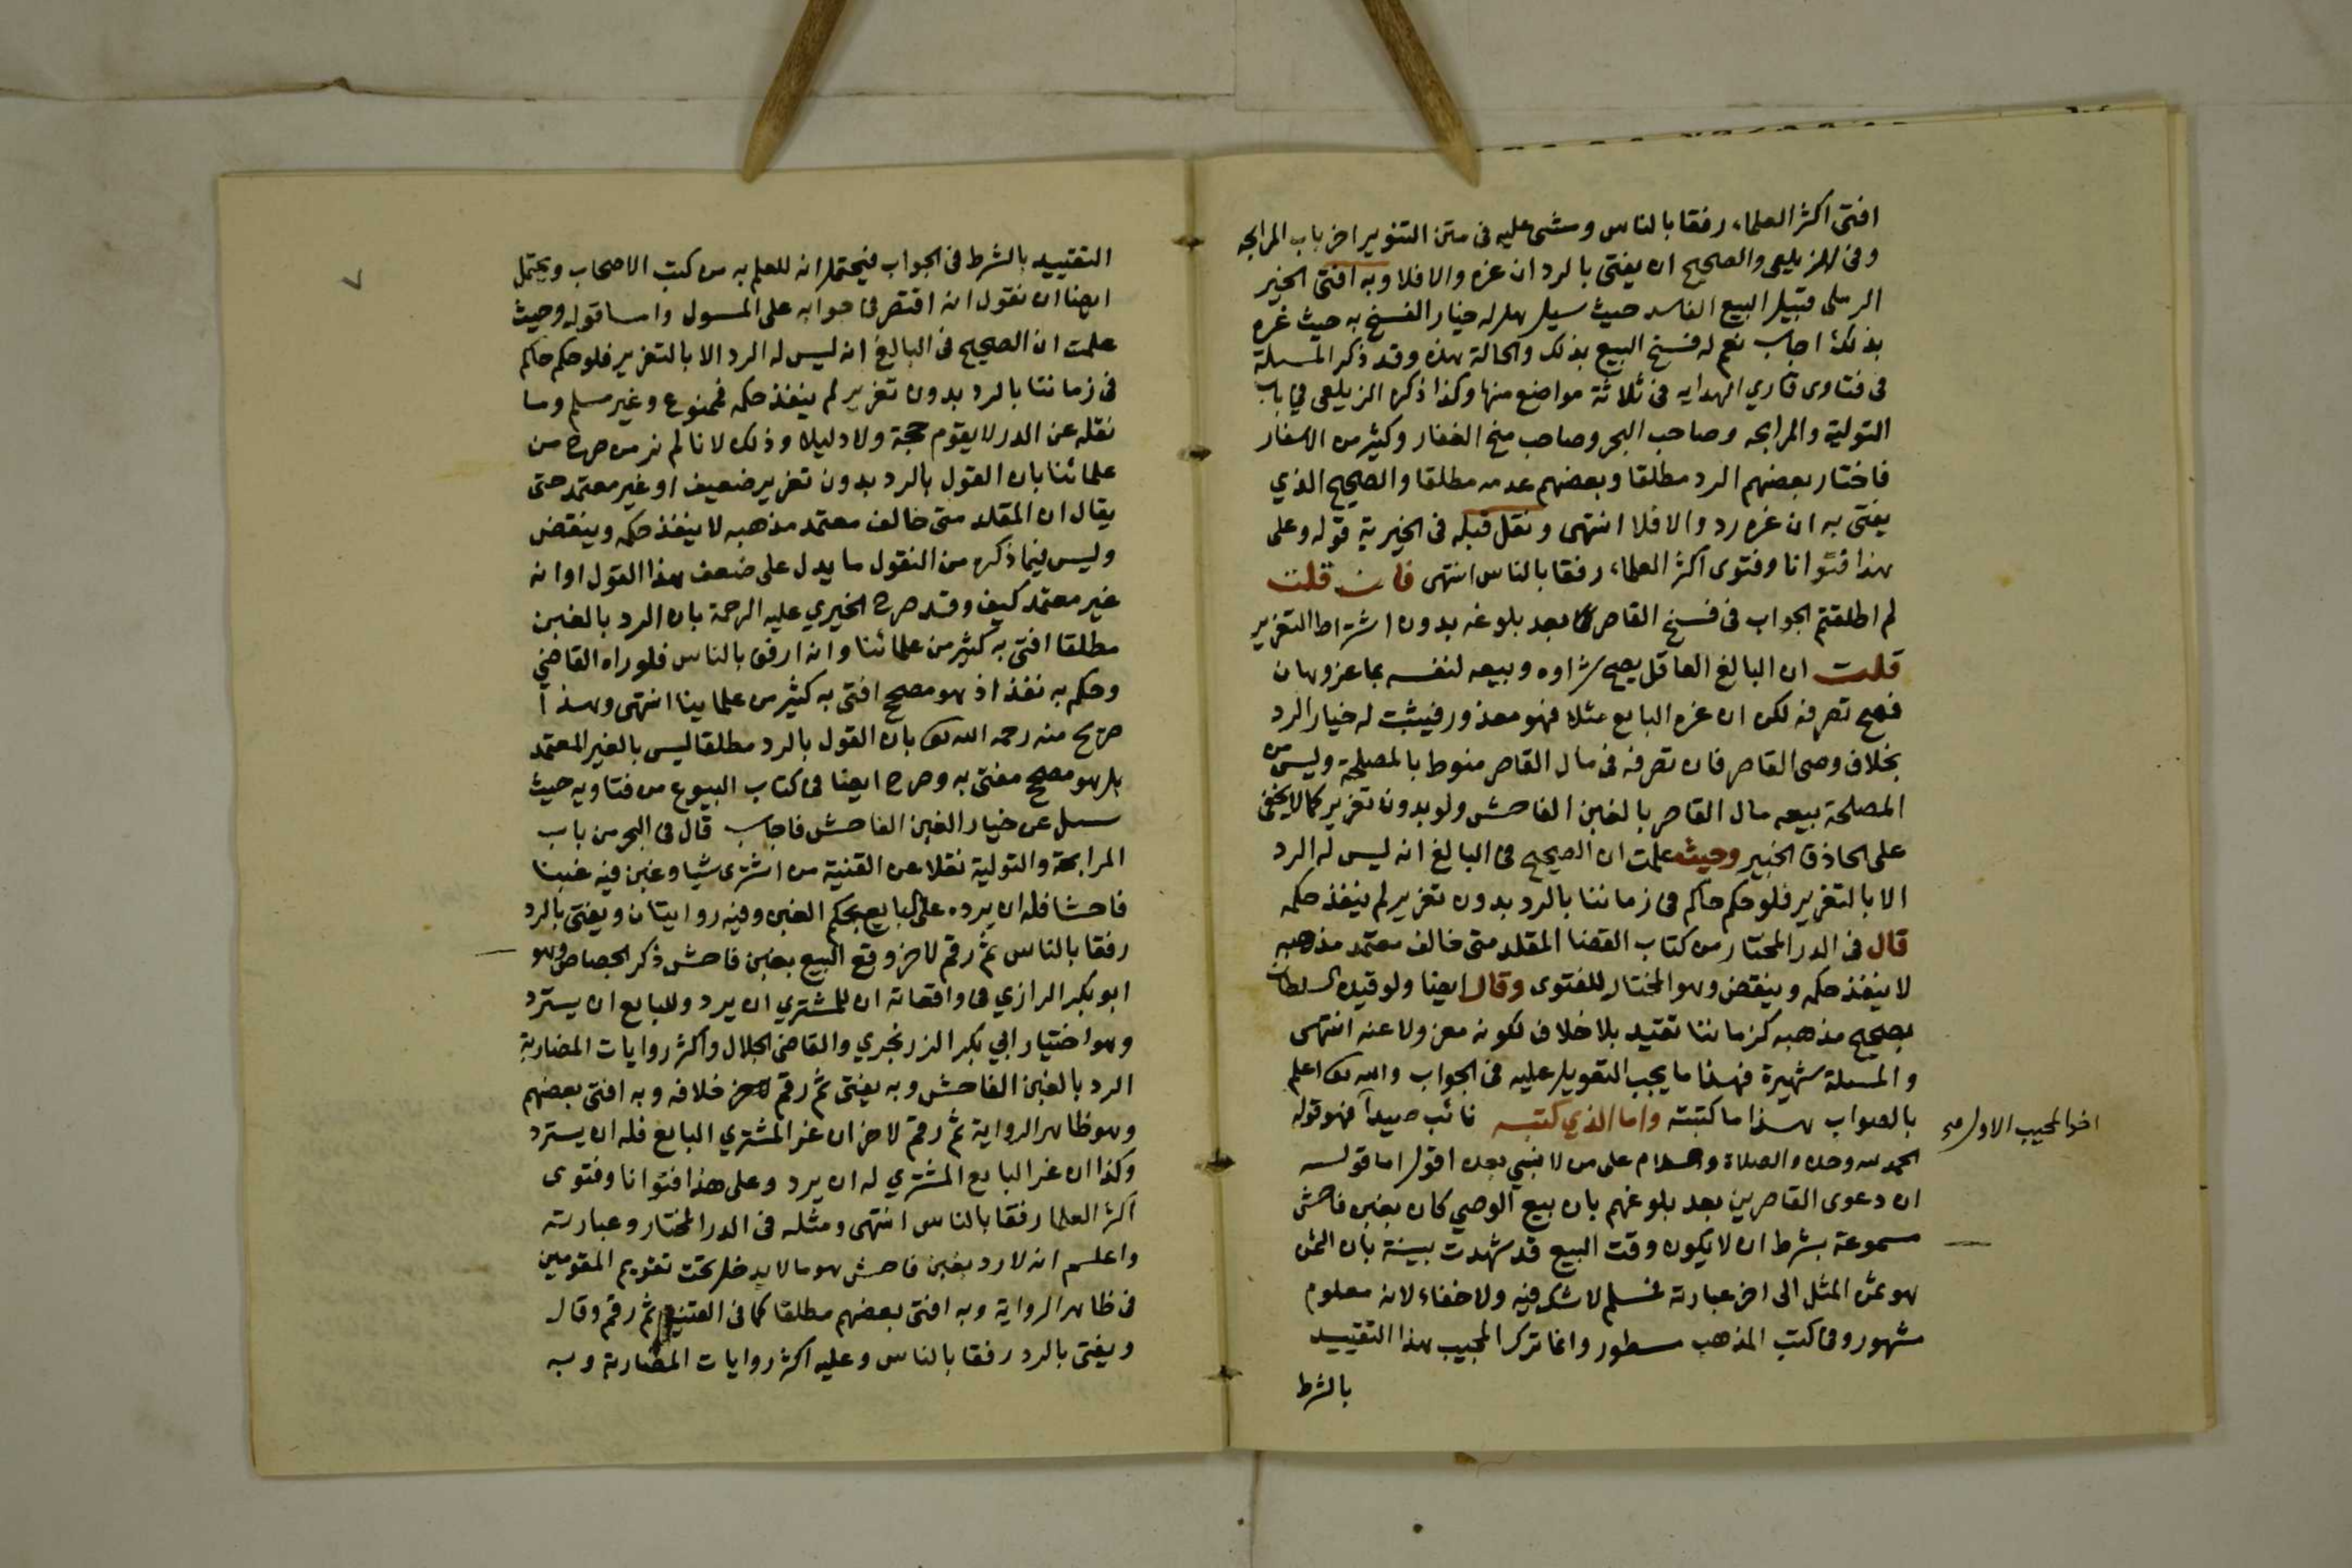 افتى اكثر العلماء رفقا بالناس ومشى عليه فى متن التنوير اخر باب المرابحه
وفى الزيلعى والصحيح ان يفتى بالرد ان غره والا فلا وبه افتى الخير
الرملى قبيل البيع الفاسد حيث سيل هل له خيار الفسخ به حيث غره
بذلك اجاب نعم له فسخ البيع بذلك والحالة هذه وقد ذكر المسلة
فى فتاوى قاري الهدايه فى ثلاثة مواضع منها وكذا ذكره الزيلعى في باب
التولية والمرابحه وصاحب البحر وصاحب منح الغفار وكثير من الاسفار
فاختار بعضهم الرد مطلقا وبعضهم عدمه مطلقا والصحيح الذي
يفتى به ان غره رد والا فلا انتهى ونقل قبله فى الخيرية قوله وعلى
هذا فتوانا وفتوى اكثر العلماء رفقا بالناس انتهى فان قلت
لم اطلقتم الجواب فى فسخ القاصر بعد بلوغه بدون اشتراط التغرير
قلت ان البالغ العاقل يصح شراوه وبيعه لنفسه بما عز وهان
فصح تصرفه لكن ان غره البايع مثلا فهو معذور فيثبت له خيار الرد
بخلاف وصى القاصر فان تصرفه فى مال القاصر منوط بالمصلحة وليس من
المصلحة بيعه مال القاصر بالغبن الفاحش ولو بدون تغرير كما لا يخفى
على الحاذق الخبير وحيث علمت ان الصحيح فى البالغ انه ليس له الرد
الا بالتغرير فلو حكم حاكم فى زماننا بالرد بدون تغرير لم ينفذ حكمه
قال فى الدر المختار من كتاب القضا المقلد متى خالف معتمد مذهبه
لا ينفذ حكمه وينقض وهو المختار للفتوى وقال ايضا ولو قيده السلطان
بصحيح مذهبه كزماننا تقيد بلا خلاف لكونه معزولا عنه انتهى
والمسلة شهيرة فهذا ما يجب التعويل عليه فى الجواب والله تعا اعلم
بالصواب هذا ما كتبته واما الذي كتبه نائب صيدا فهو قوله
اخو المجيب الاول صح
الحمد لله وحده والصلاة والسلام على من لا نبي بعده اقول اما قوله
ان دعوى القاصرين بعد بلوغهم بان بيع الوصي كان بغبن فاحش
مسموعة بشرط ان لا يكون وقت البيع قد شهدت بينة بان الثمن
هو ثمن المثل الى اخر عبارته فمسلم لا شك فيه ولا خفاء لانه معلوم
مشهور وفى كتب المذهب مسطور وانما ترك المجيب هذا التقييد
بالشرط
٧
التقييد بالشرط فى الجواب فيحتمل انه للعلم به من كتب الاصحاب ويحتمل
ايضا ان نقول انه اقتصر فى جوابه على المسول واما قوله وحيث
علمت ان الصحيح فى البالغ انه ليس له الرد الا بالتغرير فلو حكم حاكم
فى زماننا بالرد بدون تغرير لم ينفذ حكمه فممنوع وغير مسلم وما
نقله عن الدر لا يقوم حجة ولا دليلا وذلك لانا لم نر من صرح من
علمائنا بان القول بالرد بدون تغرير ضعيف او غير معتمد حتى
يقال ان المقلد متى خالف معتمد مذهبه لا ينفذ حكمه وينقض
وليس فيما ذكره من النقول ما يدل على ضعف هذا القول او انه
غير معتمد كيف وقد صرح الخيري عليه الرحمة بان الرد بالغبن
مطلقا افتى به كثير من علمائنا وانه ارفق بالناس فلو راه القاضي
وحكم به نفذ اذ هو مصحح افتى به كثير من علماينا انتهى وهذا
صريح منه رحمه الله تعا بان القول بالرد مطلقا ليس بالغير المعتمد
بل هو مصحح مفتى به وصرح ايضا فى كتاب البيوع من فتاويه حيث
سيل عن خيار الغبن الفاحش فاجاب قال فى البحر من باب
المرابحة والتولية نقلا عن القنية من اشترى شيا وغبن فيه غبنا
فاحشا فله ان يرده على البايع بحكم الغبن وفيه روايتان ويفتى بالرد
رفقا بالناس ثم رقم لاخر وقع البيع بغبن فاحش ذكر الجصاص وهو
ابو بكر الرازي فى واقعاته ان للمشتري ان يرد وللبايع ان يسترد
وهو اختيار ابي بكر الزرنجري والقاضى الجلال واكثر روايات المضاربة
الرد بالغبن الفاحش وبه يفتى ثم رقم لاخر خلافه وبه افتى بعضهم
وهو ظاهر الرواية ثم رقم لاخر ان غر المشتري البايع فله ان يسترد
وكذا ان غر البايع المشتري له ان يرد وعلى هذا فتوانا وفتوى
اكثر العلما رفقا بالناس انتهى ومثله فى الدر المختار وعبارته
واعلم انه لا رد بغبن فاحش هو ما لا يدخل تحت تقويم المقومين
فى ظاهر الرواية وبه افتى بعضهم مطلقا كما فى القنية ثم رقم وقال
ويفتى بالرد رفقا بالناس وعليه اكثر روايات المضاربة وبه